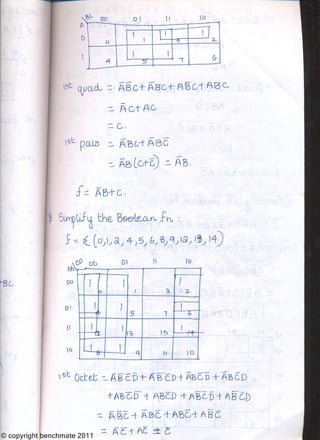 A\BC 00 01 11 10
0 0 1 1 1 3 1 2
1 4 1 5 1 7 6
1st quad = A̅B̅C + A̅BC + AB̅C + ABC
= A̅C + AC
= C.
1st pair = A̅BC + A̅BC̅
= A̅B (C+C̅) = A̅B.
f = A̅B + C.
Simplify the Boolean fn :
F = Σ (0,1,2,4,5,6,8,9,12,13,14)
AB\CD 00 01 11 10
00 1 1 1 3 1 2
01 1 1 5 7 1 6
11 1 1 13 15 1 14
10 1 8 1 9 11 10
1st Octet = A̅B̅C̅D̅ + A̅B̅C̅D + A̅BC̅D̅ + A̅BC̅D
+ABC̅D̅ + ABC̅D + AB̅C̅D̅ + AB̅C̅D
= A̅B̅C̅ + A̅BC̅ + ABC̅ + AB̅C̅
= A̅C̅ + AC̅ = C̅
© copyright benchmate 2011